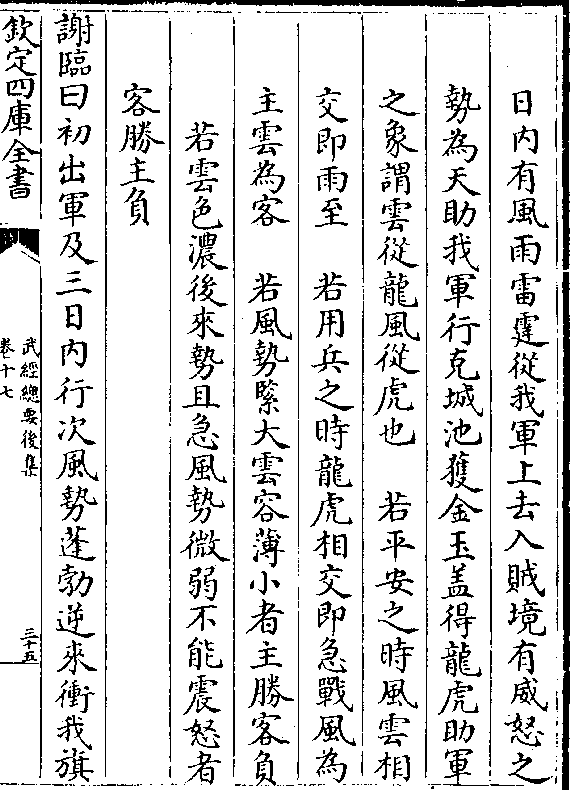 日内有風雨雷霆從我軍上去入賊境有威怒之
勢為天助我軍行克城池獲金玉盖得龍虎助軍
之象謂雲從龍風從虎也　若平安之時風雲相
交即雨至　若用兵之時龍虎相交即急戰風為
主雲為客　若風勢緊大雲容薄小者主勝客負
若雲色濃後來勢且急風勢微弱不能震怒者
客勝主負
謝臨曰初出軍及三日内行次風勢蓬勃逆來衝我旗
欽定四庫全書
武經總要後集
卷十七
三十五